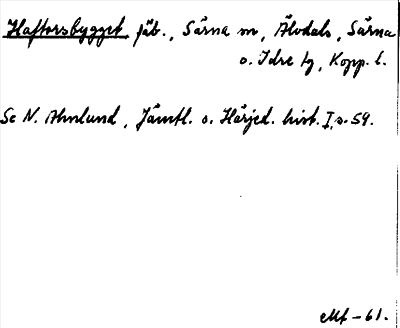 Haftorsbygget fäb., Särna sn, Älvdals, Särna
o. Idre tg, Kopp. l.
Se N. Ahnlund, Jämtl. o. Härjed. hist. I, s. 59.
-61.